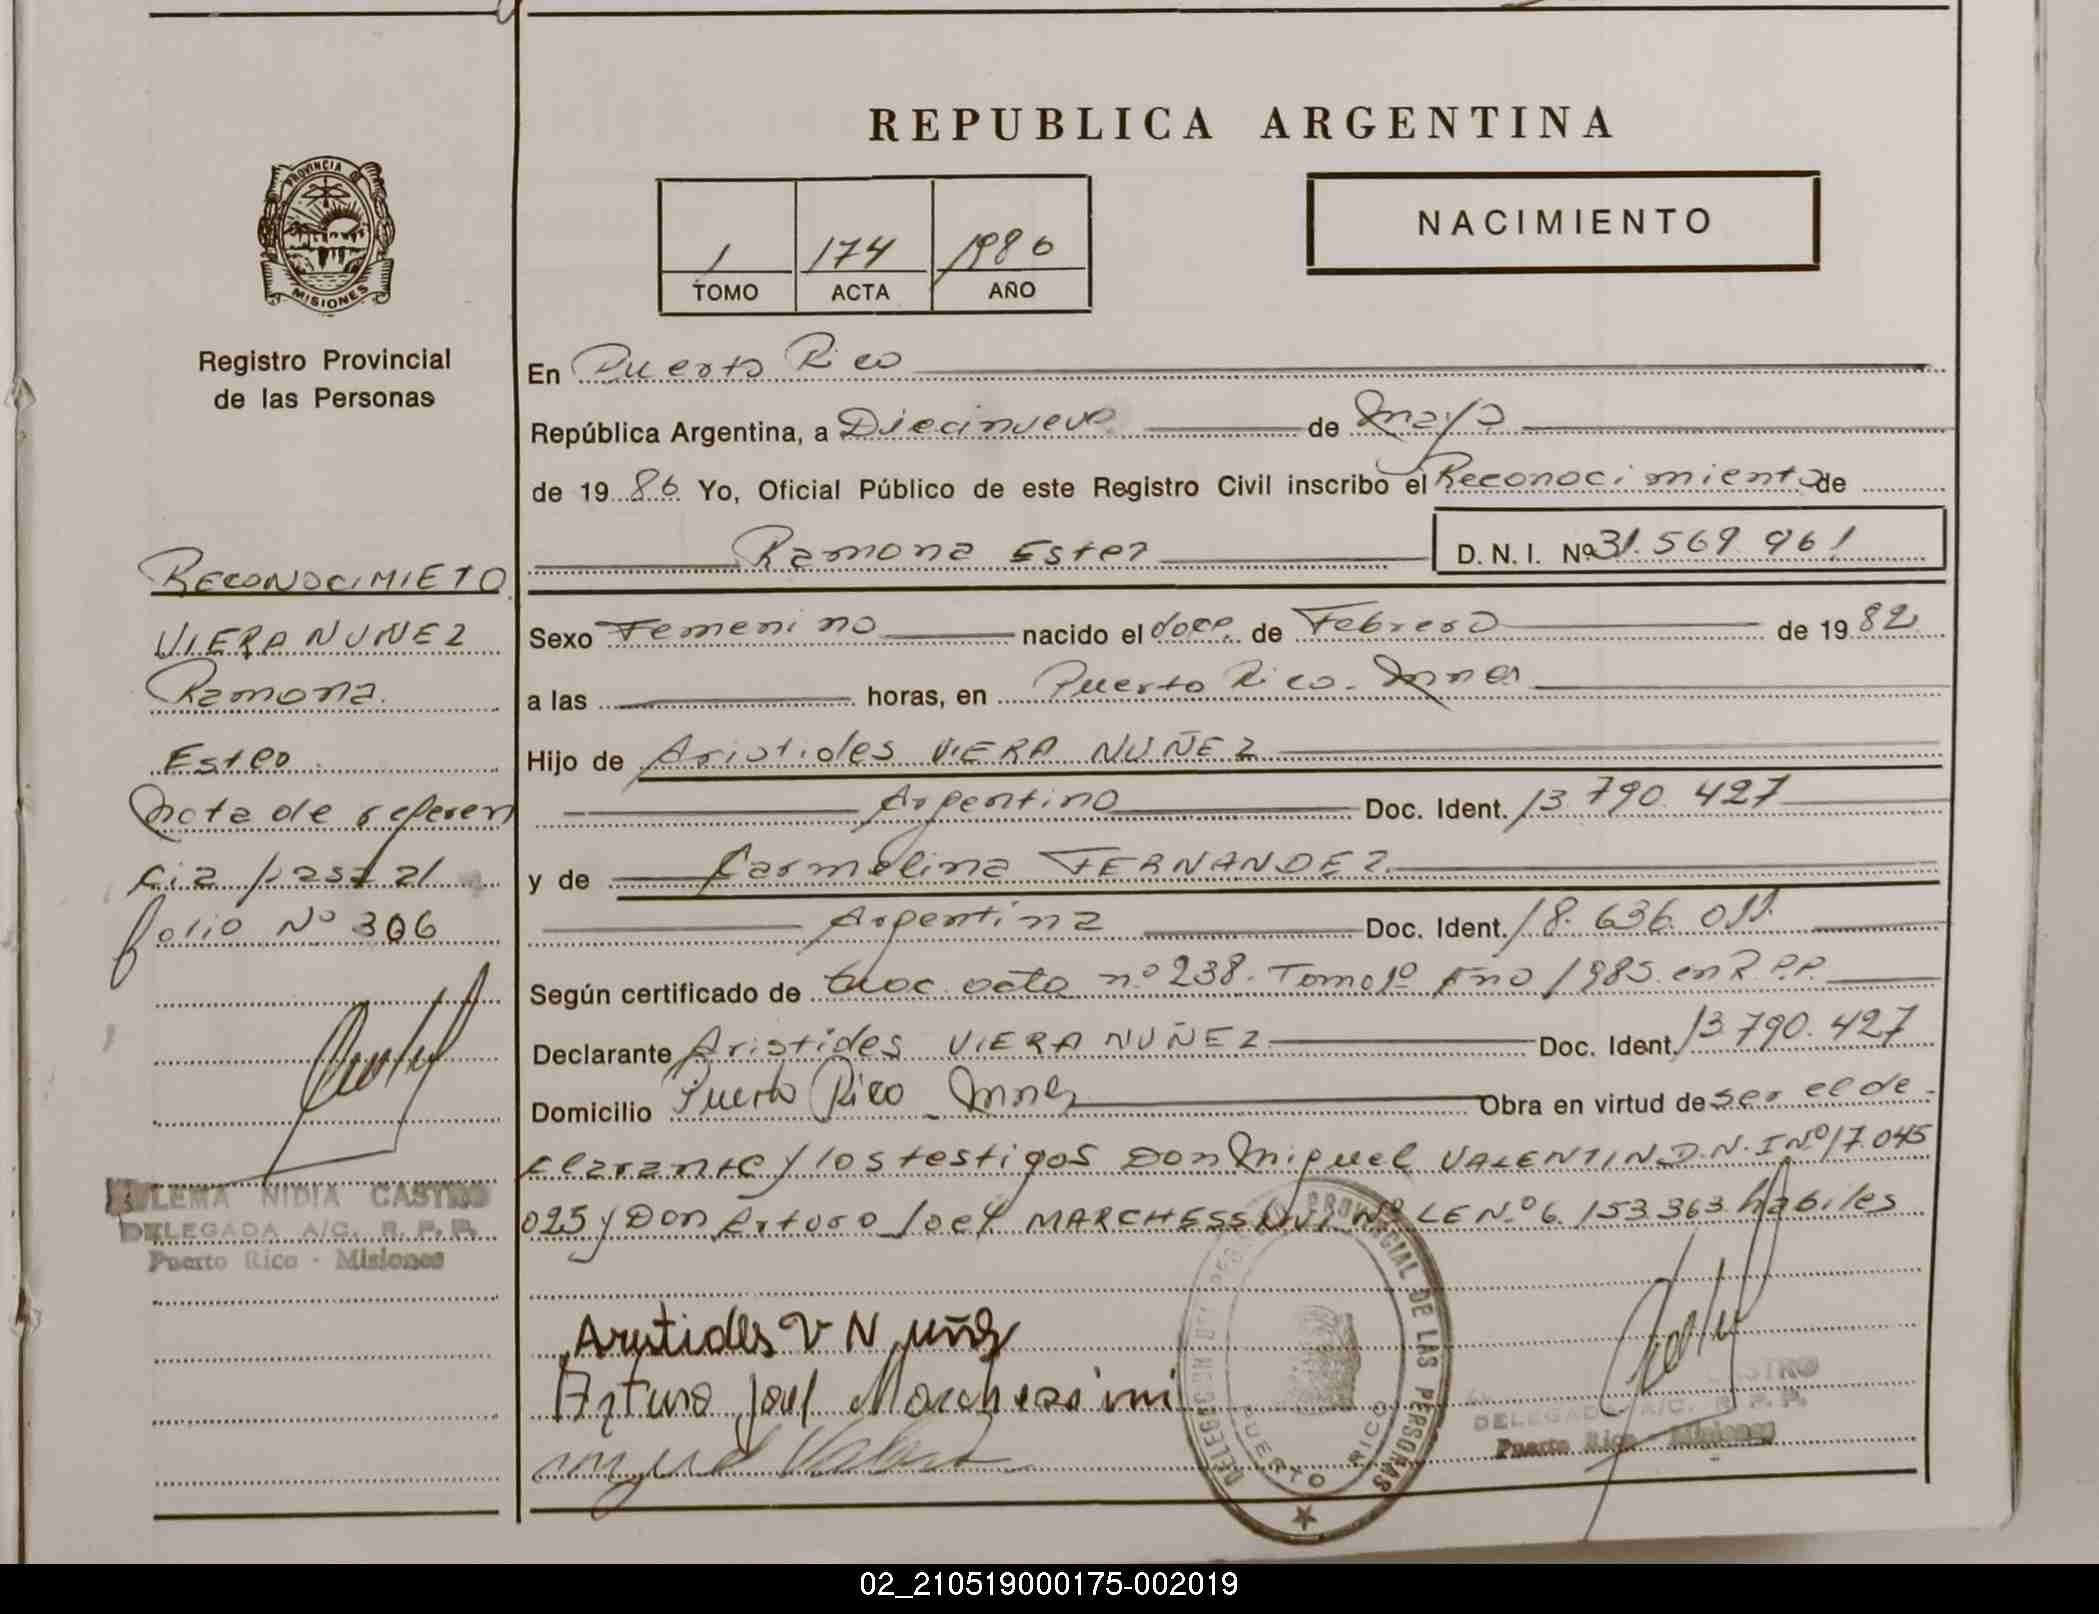 REPUBLICA ARGENTINA
PROVINCIA D
MISIONES
Registro Provincial
de las Personas
1 174 1986
TOMO ACTA AÑO
NACIMIENTO
En Puerto Rico
República Argentina, a Diecinueve de mayo
de 19 86 Yo, Oficial Público de este Registro Civil inscribo el Reconocimiento de
Ramona Ester D. N. I. Nº 31.569 961
RECONOCIMIETO
VIERA NUÑEZ
Ramona.
Ester
nota de referen
cia pasa al
folio Nº 306
Sexo Femenino nacido el doce de Febrero de 19 82
a las horas, en Puerto Rico. Mnes
Hijo de Aristides VIERA NUÑEZ
Argentino Doc. Ident. 13 790. 427
y de Carmelina FERNANDEZ
Argentina Doc. Ident. 18. 636. 011.
Según certificado de acta nº 238. Tomo 1º Año 1985 en R.P.P.
Declarante Aristides VIERA NUÑEZ Doc. Ident. 13 790. 427
Domicilio Puerto Rico Mnes Obra en virtud de ser el de-
clarante y los testigos Don Miguel VALENTIN D.N.I Nº 17.045
025 y Don Arturo Joel MARCHESSINI Nº LE N.º 6. 153 363 habiles
LEMA NIDIA CASTRO
DELEGADA A/C. R. P. P.
Puerto Rico - Misiones
Aristides V Nuñez
Arturo Joel Marchessini
Miguel
DELEGACION DEL REGISTRO PROVINCIAL DE LAS PERSONAS
PUERTO RICO
CASTRO
DELEGADA A/C. R. P. P.
Puerto Rico - Misiones
02_210519000175-002019